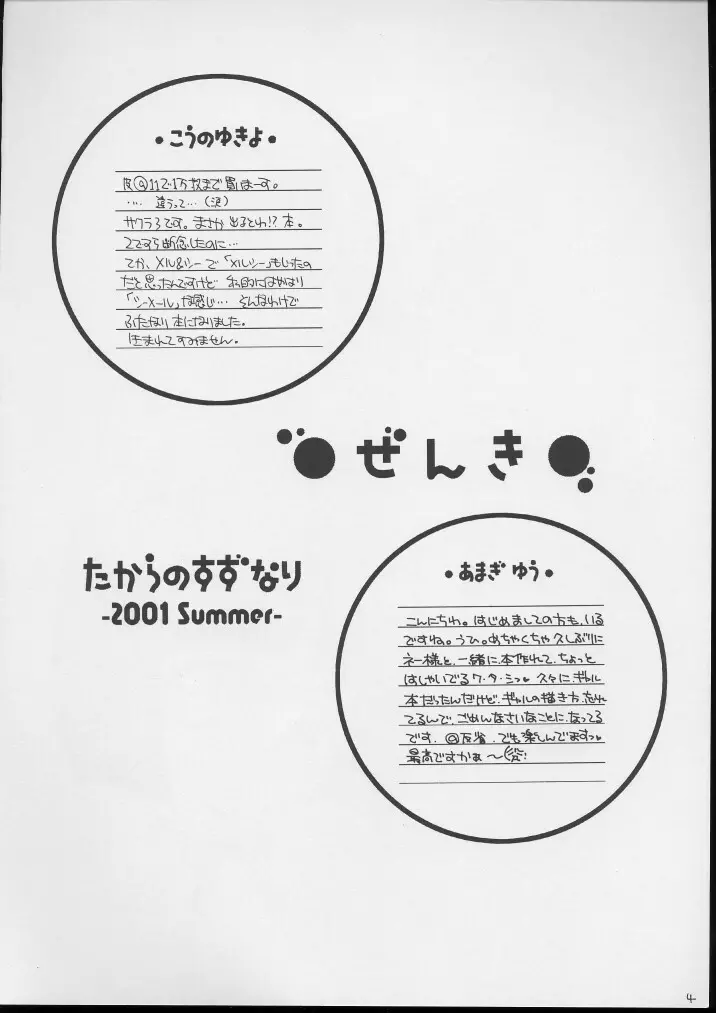 ・こうのゆきよ・
まで買いまーす。
‥‥ 違うって…(涙)
サクラ3です。まさか出るとわ!?本。
2ですら断念したのに…
てか、メル&シーで「メルシー」もじったの
だと思ったんですけど 私的にはやはり
「シーメール」な感じ… そんなわけで
ふたなり本になりました。
生まれてすみません。
ぜんき
たからのすずなり
-2001 Summer-
・あまぎゆう・
こんにちわ。はじめましての方も、いる
ですね。うひ。めちゃくちゃ久しぶりに
ネー様と、一緒に、本作れて、ちょっと
はしゃいでるワ・タ・シっ♥ 久々にギャル
本だったんだけど、ギャルの描き方、忘れ
てるんで、ごめんなさいなことに、なってる
です。@反省。でも楽しんでますっ♥
最高ですかぁ〜
4